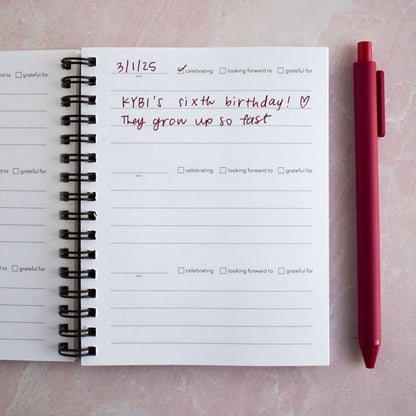 3/1/25 ✓ celebrating ☐ looking forward to ☐ grateful for
to ☐ grateful for
KYBI's sixth birthday! ♡
They grow up so fast
☐ celebrating ☐ looking forward to ☐ grateful for
to ☐ grateful for
☐ celebrating ☐ looking forward to ☐ grateful for
to ☐ grateful for